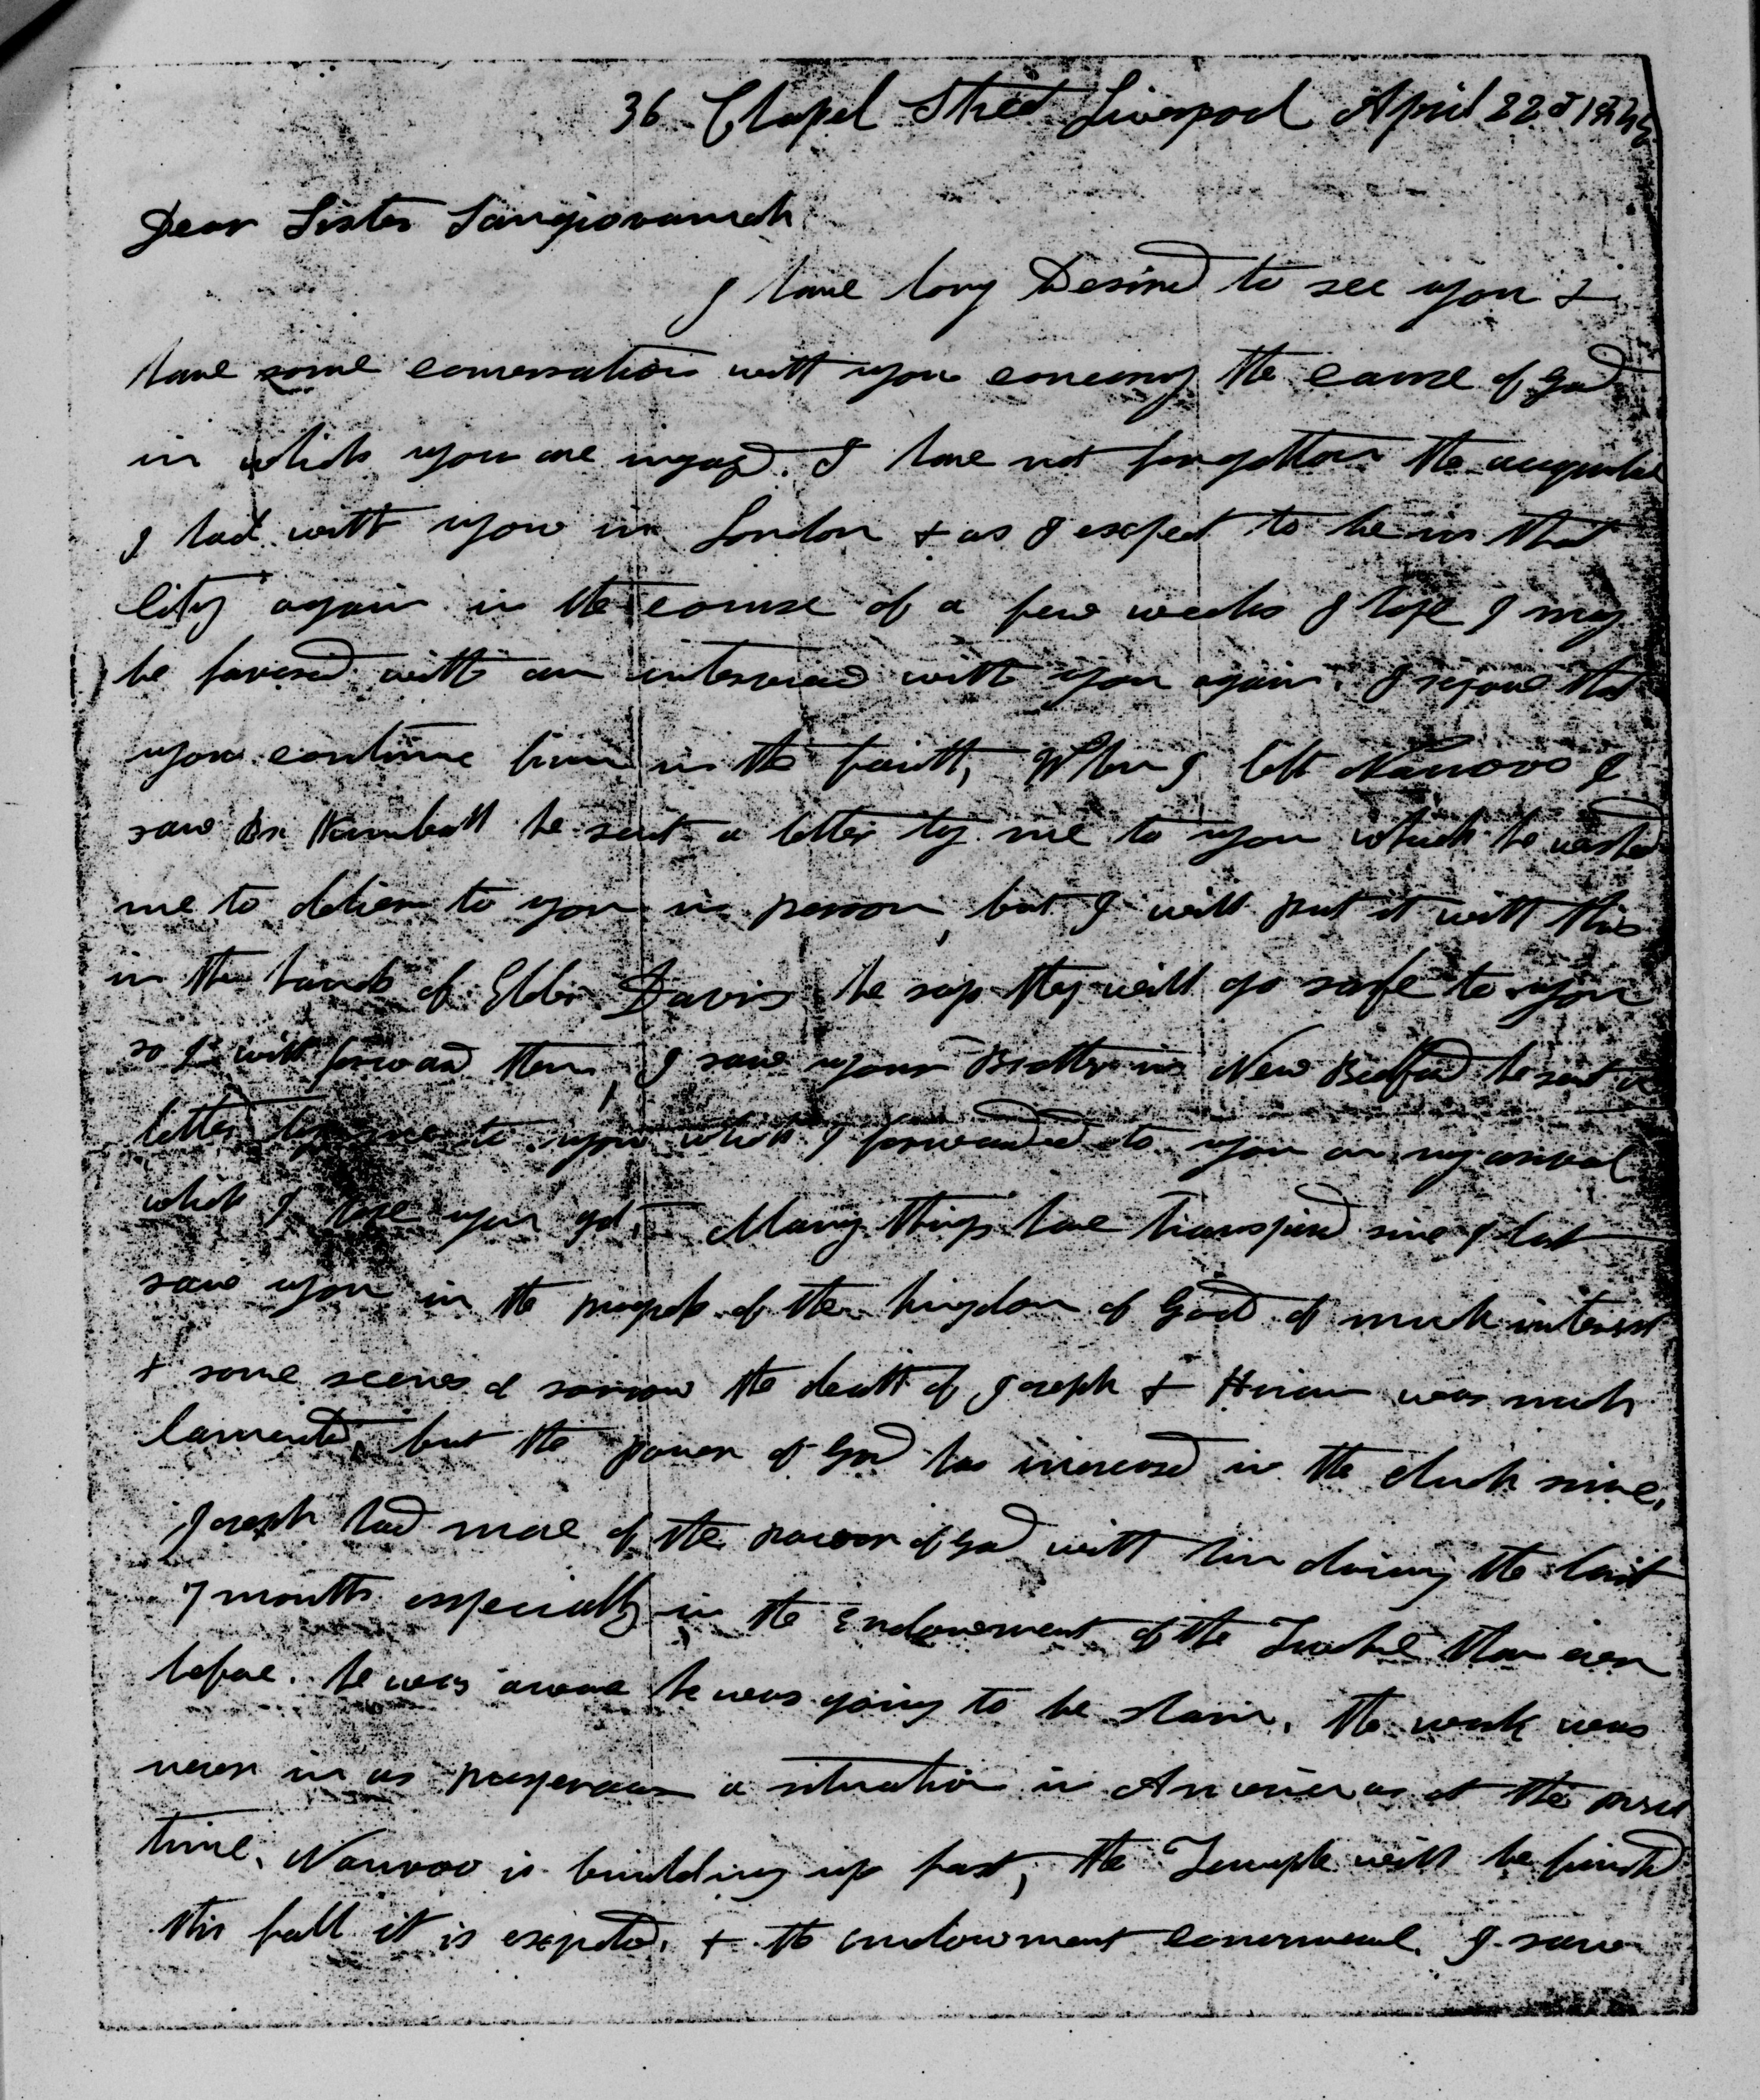 36 Chapel Street Liverpool April 22d 1845
Dear Sister Sangiovannah
I have long Desired to see you &
have some conversation with you concerning the cause of God
in which you are ingaged. I have not forgotten the
I had with you in London & as I expect to be in that
City again in the course of a few weeks I hope I may
be favored with an interview with you again. I rejoice that
you continue firm in the faith, When I left Nauvoo I
saw Br Kimball he sent a letter by me to you which he wished
me to deliver to you in person, but I will put it with this
in the hands of Elder Davis he says they will go safe to you
so I will forward them, I saw your Brother in New Bedford he sent a
letter by me to you which I forwarded to you on my arrival
which I hope you got. Many things have transpired since I last
saw you in the progress of the kingdom of God of much interest
& some scenes of sorrow the death of Joseph & Hiram was much
lamented, but the power of God has increased in the church since.
Joseph had more of the power of God with him during the last
7 months especially in the Endowment of the Twelve than ever
before. he was aware he was going to be slain. the work was
never in as prosperous a situation in America as at the
time. Nauvoo is building up fast, the Temple will be finished
this fall it is expected. & the endowment commence. I saw